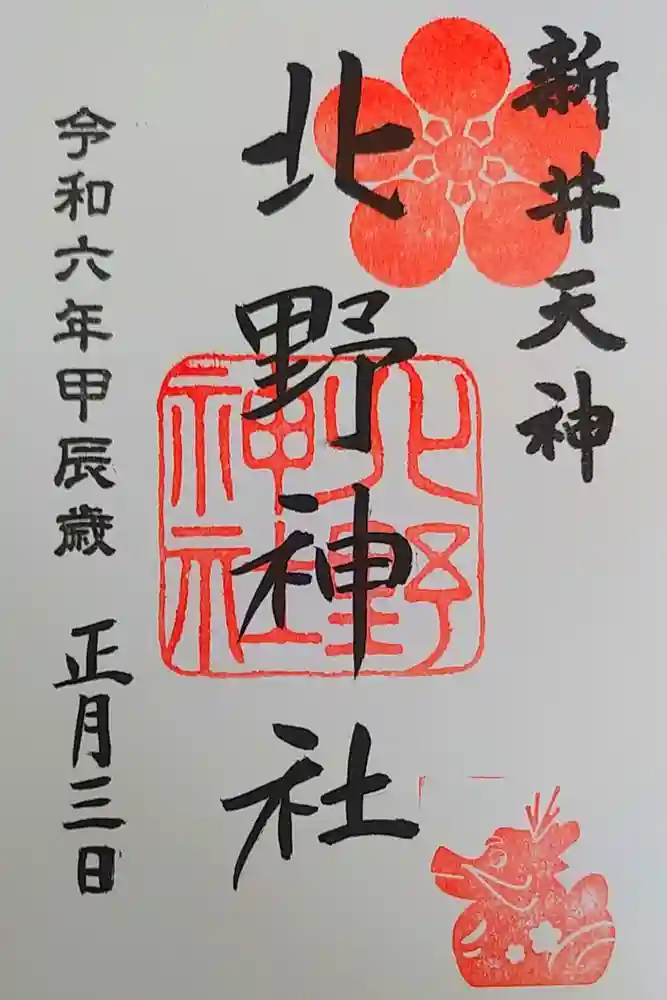 新井天神
北野神社
北野神社
令和六年甲辰歳 正月三日